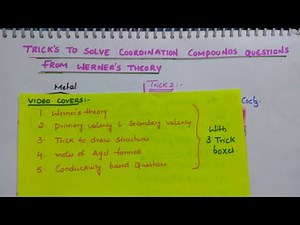 TRICK'S TO SOLVE COORDINATION COMPOUNDS QUESTIONS
FROM WERNER'S THEORY
Metal
Trick 2:-
VIDEO COVERS:-
1. Werner's theory
2. Primary valency & Secondary valency
3. Trick to draw structures
4. moles of Agcl formed
5. Conductivity based Question
With
3 Trick
boxes
CoCl3